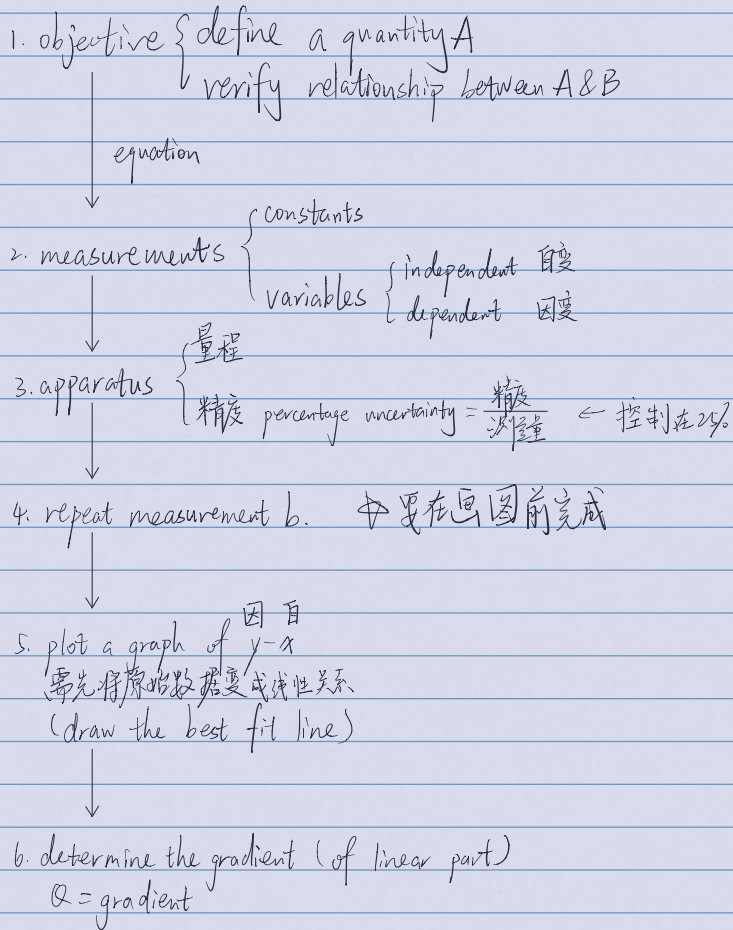 1. objective { define a quantity A
verify relationship between A & B
equation
constants
2. measurements {
variables { independent 自变
dependent 因变
量程
3. apparatus {
精度 percentage uncertainty = 精度/测量量 ← 控制在2%
4. repeat measurement b. 要在画图前完成
因 自
5. plot a graph of y-x
需先将原始数据变成线性关系
(draw the best fit line)
6. determine the gradient (of linear part)
Q = gradient